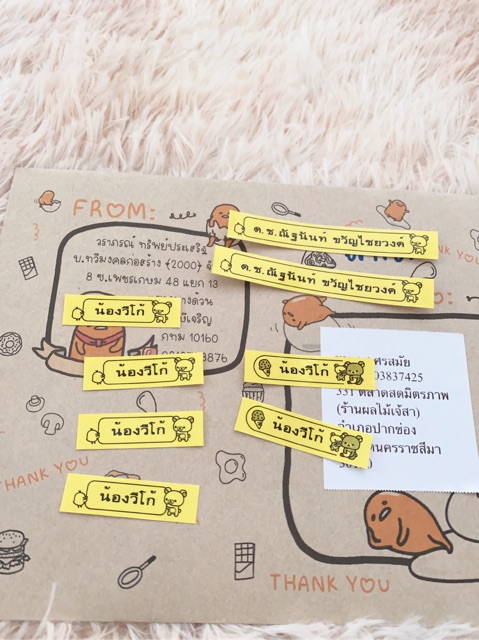 FROM:
วราภรณ์ ทรัพย์ประเสริฐ
บ.ทวีมงคลก่อสร้าง {2000}
8 ซ.เพชรเกษม 48 แยก 13
กทม 10160
3876
ด.ช.ณัฐนันท์ ขวัญไชยวงค์
ด.ช.ณัฐนันท์ ขวัญไชยวงค์
น้องวีโก้
น้องวีโก้
น้องวีโก้
น้องวีโก้
น้องวีโก้
น้องวีโก้
ศรสมัย
03837425
331 ตลาดสดมิตรภาพ
(ร้านผลไม้เจ้สา)
อำเภอปากช่อง
นครราชสีมา
THANK YOU
THANK YOU